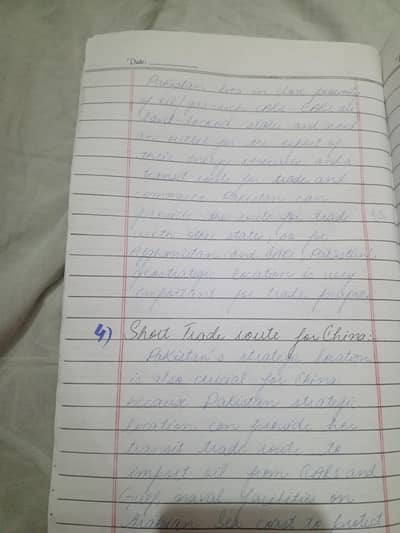 Date:
Pakistan lies in close proximity
of oil/gas-rich CARs. CARs are
land-locked states and need
an outlet for the export of
their energy resources and a
transit route for trade and
commerce. Pakistan can
provide the route for trade
with other states, as for
Afghanistan and CARs Pakistan's
geostrategic location is very
important for trade purposes
4) Short Trade route for China:-
Pakistan's strategic location
is also crucial for China
because Pakistan strategic
location can provide her
transit trade route to
import oil from CARs and
Gulf, naval facilities on
Arabian Sea coast to protect